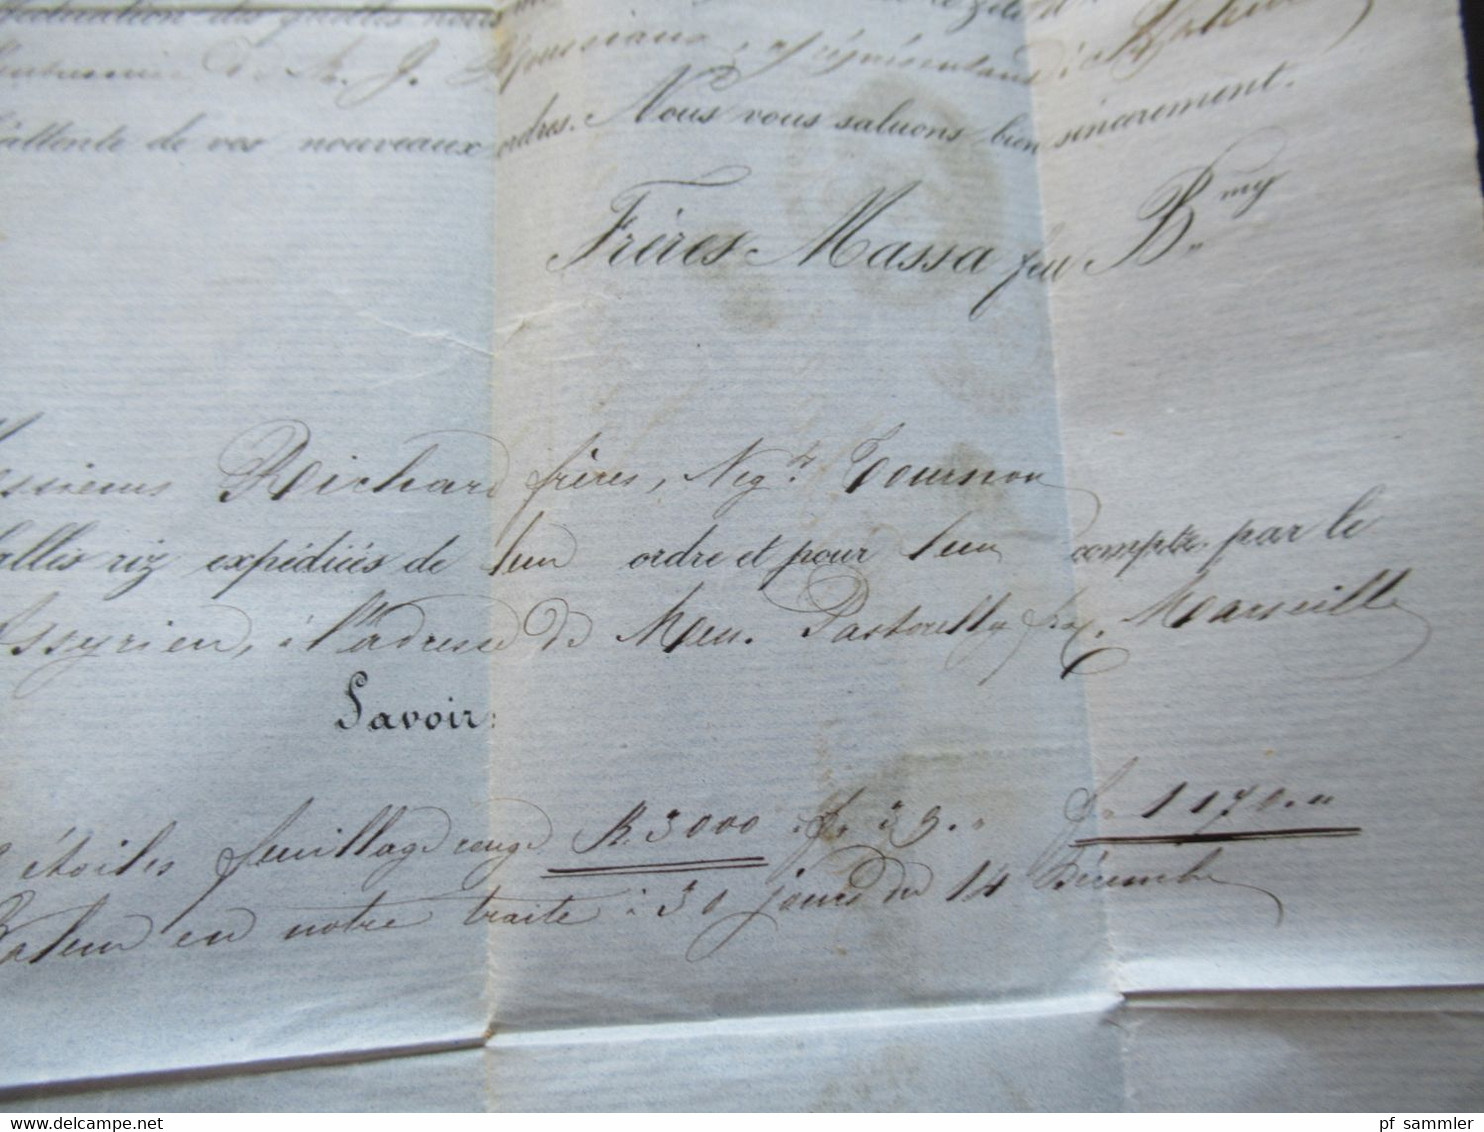 des quelles nous
de M. J. représentant à
l'attente de vos nouveaux ordres. Nous vous saluons bien sincèrement.
Frères Massa feu B.my
Messieurs Roichard frères, Neg.ts Tournon
Balles riz expédiées de leur ordre et pour leur compte par le
Assyrien, à l'adresse de Mess. Marseille
Savoir:
étoiles feuillage rouge K. 3000 f. 39 .. f. 1170 . "
Valeur en notre traite à 30 jours du 14 Décembre
pf_sammler